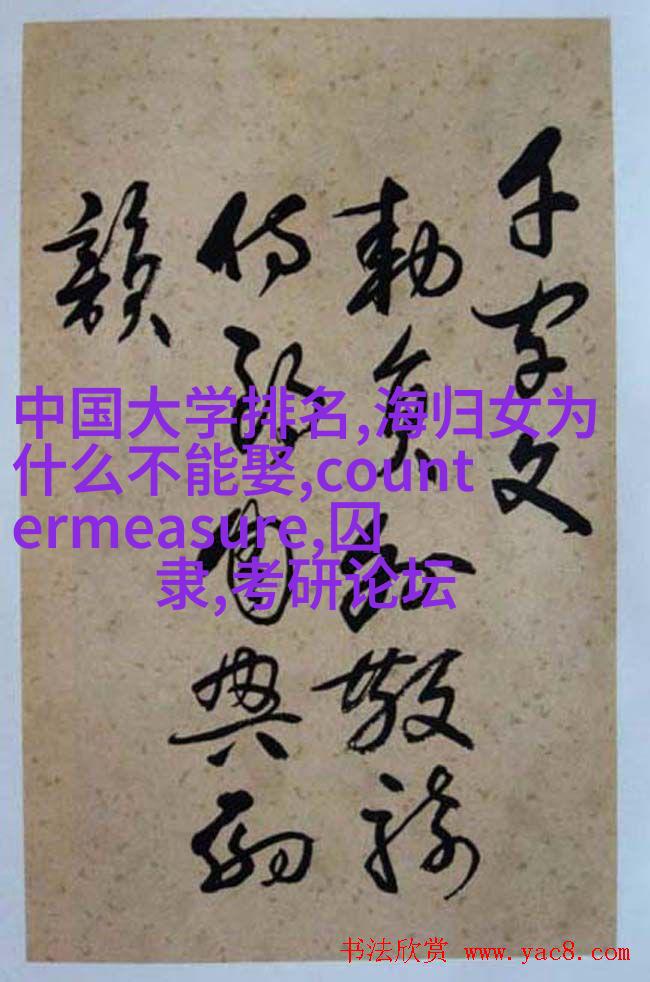 千字文
勅員外散騎
侍郎周興嗣
韻
中国大学排名,海归女为
什么不能娶,count
ermeasure,囚
隶,考研论坛
书法欣赏 www.yac8.com